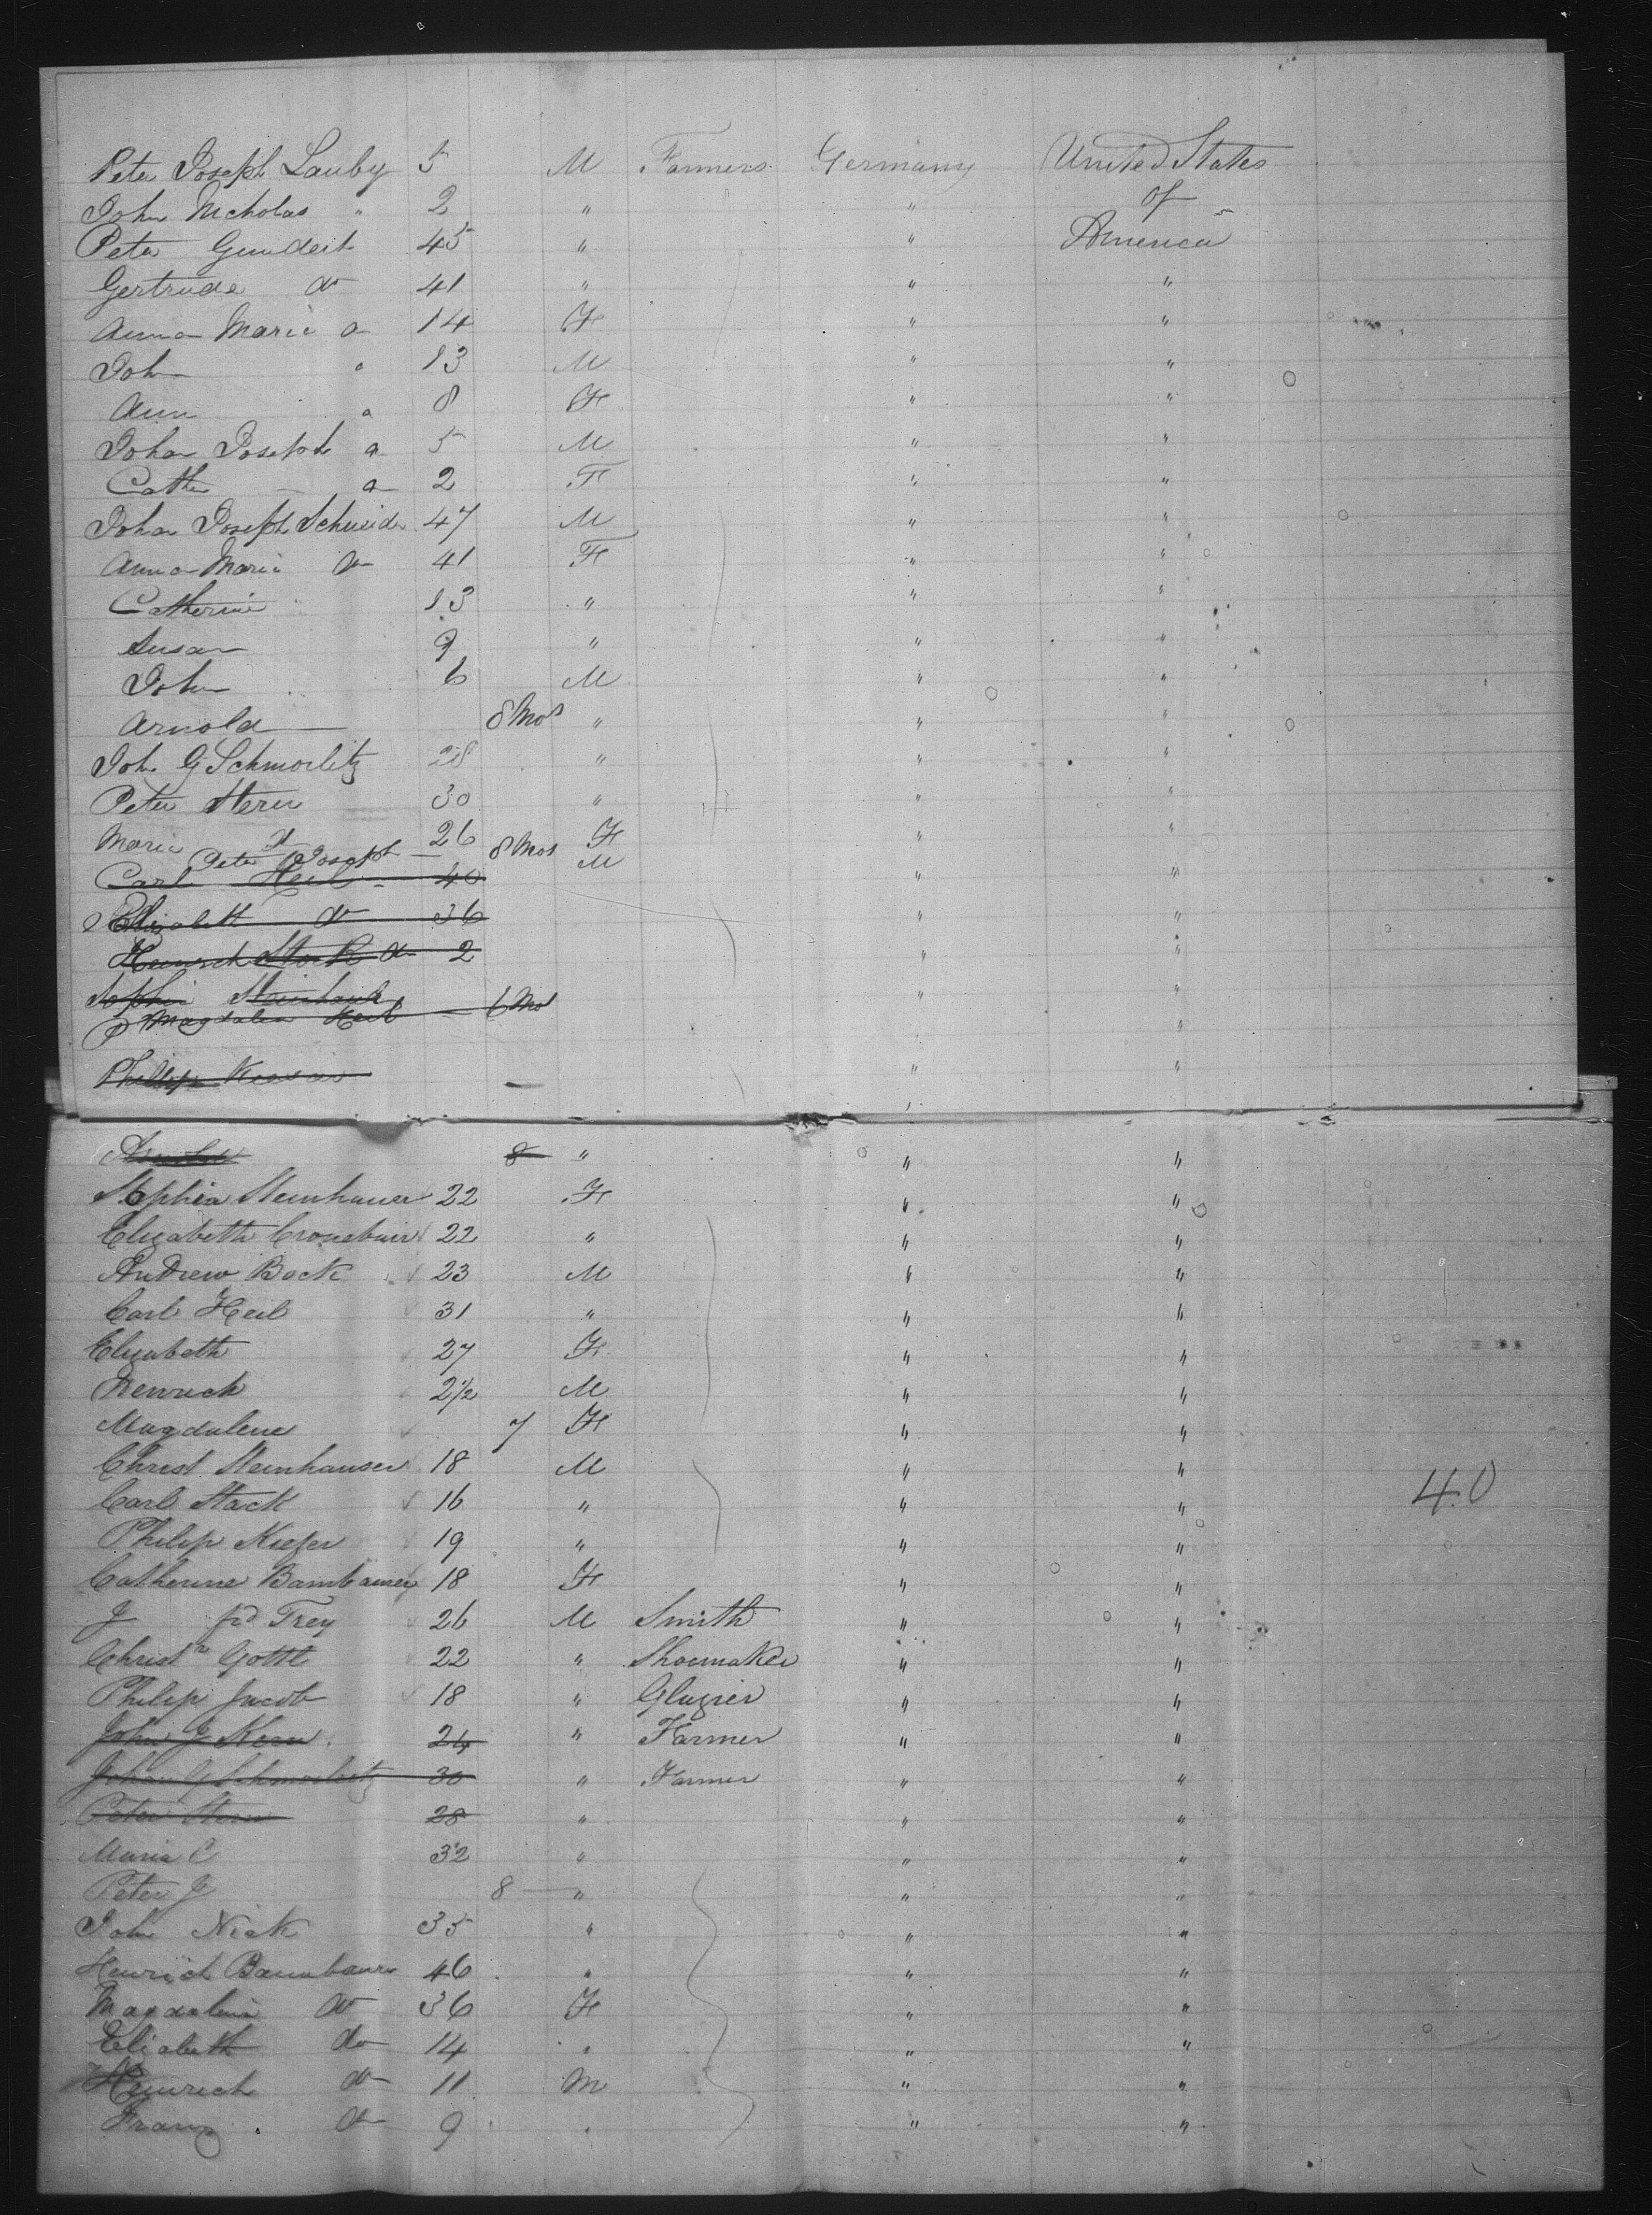 Peter Joseph Lauby 5 M Farmers Germany United States
John Nicholas " 2 " " of
Peter Gundert 45 " " America
Gertrude do 41 " " "
Anna Maria do 14 F " "
Joh " 13 M " "
Ann " 8 F " "
Johan Joseph " 5 M " "
Cath 2 F " "
Johan Joseph Schneider 47 M " "
Anna Maria do 41 F " "
Catherine 13 " " "
Susan 9 " " "
John 6 M " "
Arnold 8 Mos " " "
Joh G Schmorlitz 28 " " "
Peter Stern 30 " " "
Maria do 26 F " "
Peter Joseph 8 Mos M
Carl Heil 40 " "
Elizabeth do 36 " "
Heinrich Stack do 2 " "
Sophia Steinhauer " "
Magdalen Heil 6 Mos " "
Phillip " "
Arnold 8 " " "
Sophia Steinhauer 22 F " "
Elizabeth 22 " " "
Andrew Bock 23 M " "
Carl Heil 31 " " "
Elizabeth 27 F " "
Henrich 2½ M " "
Magdalene 7 F " "
Christ Steinhauser 18 M " "
Carl Stack 16 " " " 40
Philip Kiefer 19 " " "
Catherine 18 F " "
J Frey 26 M Smith " "
Christn Gottl 22 " Shoemaker " "
Philip Jacob 18 " Glazier " "
John J Kern 24 " Farmer " "
Johan G Schmorlitz 30 " Farmer " "
Peter Stern 28 " " "
Maria C 32 " " "
Peter J 8 " " "
John Nick 35 " " "
Heinrich Baumbauer 46 " " "
Magdalena do 36 F " "
Eliabeth do 14 " " "
Heinrich do 11 M " "
Franz do 9 " " "